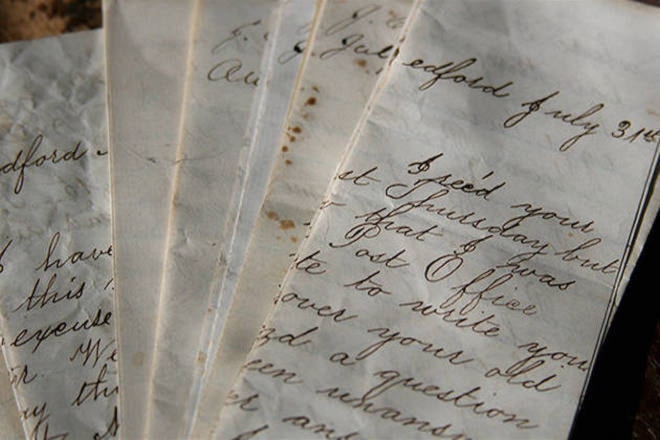 dford
I have
this
excuse
We
J.
Au
J.
J. Jul
edford July 31st
I rec'd your
st Thursday but
that I was
Post Office
te to write you
over your old
a question
een unans